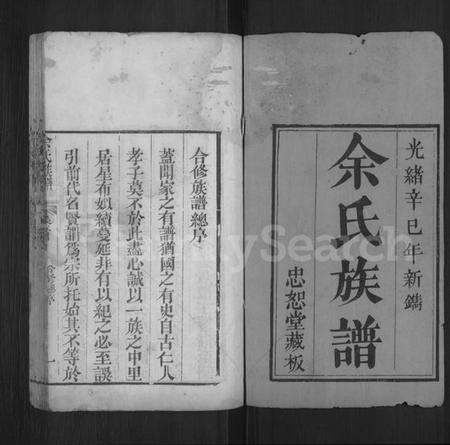 光緒辛巳年新鐫
余氏族譜
忠恕堂藏板
合修族譜總序
蓋聞家之有譜猶國之有史自古仁人
孝子莫不於此盡心誠以一族之中里
居星布姒續蔓延非有以紀之必至誤
引前代名賢謂為宗所托始其不等於
余氏族譜
一
FamilySearch